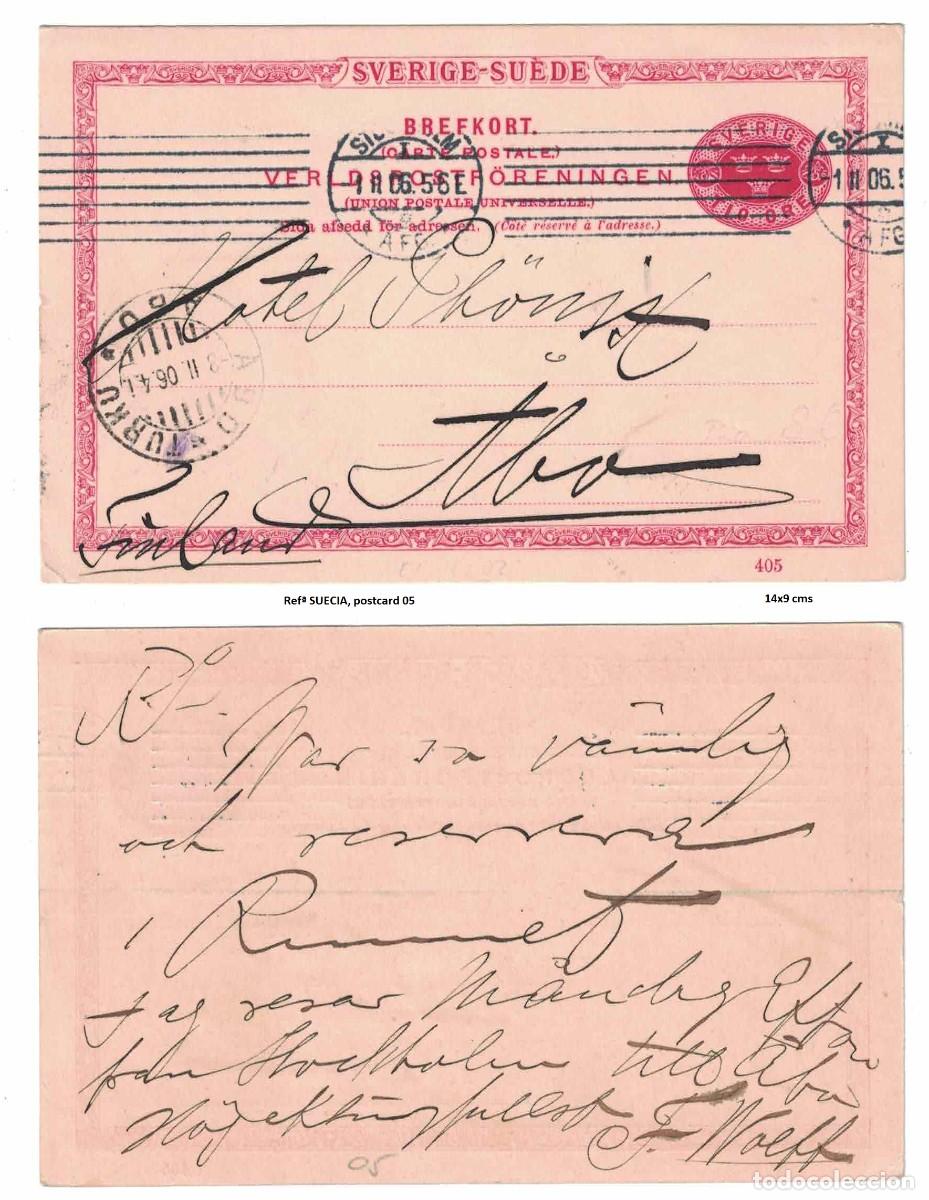 SVERIGE-SUÈDE
BREFKORT.
(CARTE POSTALE.)
VERLDSPOSTFÖRENINGEN
(UNION POSTALE UNIVERSELLE.)
Sida afsedd för adressen. (Côté réservé à l'adresse.)
SVERIGE
TIO ÖRE
-1 11 06. 5-6 E
AFG
-1 11 06. 5
AFG
Hotel Phönix
ÅBO TURKU
-2 11 06. 4
Åbo
Finland
405
Refª SUECIA, postcard 05
14x9 cms
War så vänlig
och reservera
1 Rummet
Jag resar Måndag Efton
från Stockholm till Åbo
Högaktningsfullst F. Wolff
05
todocoleccion